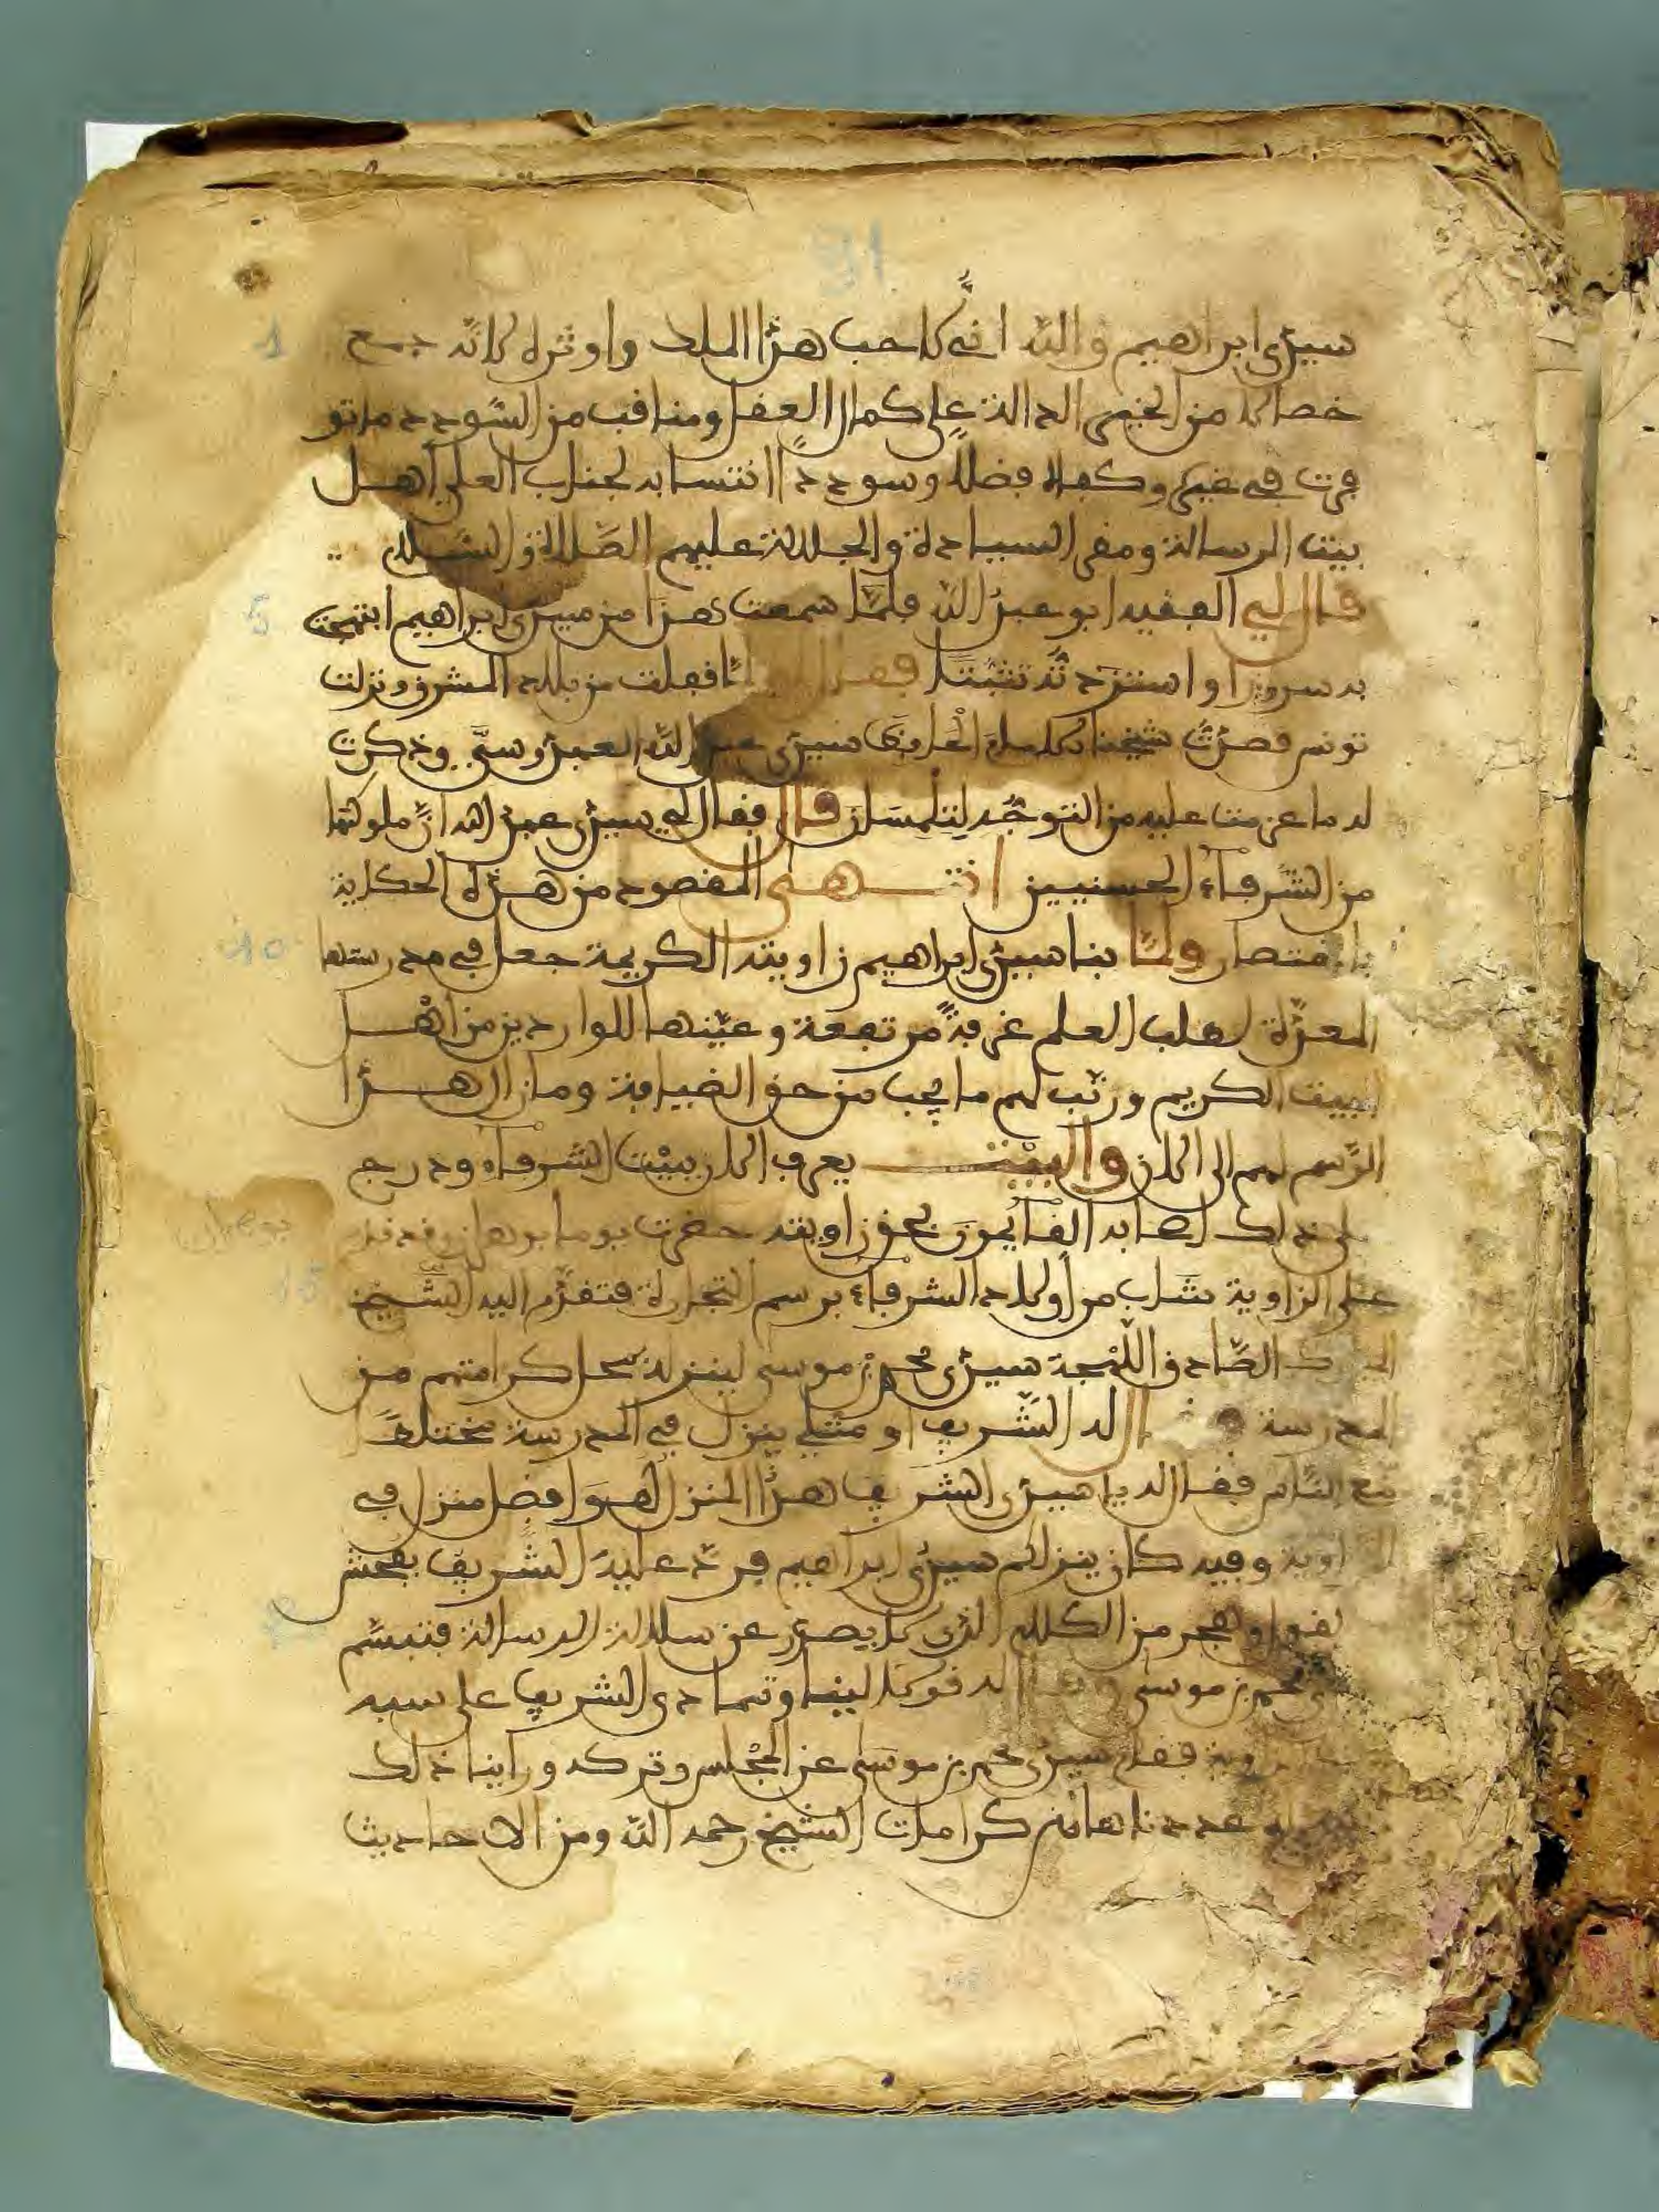 91
1 سيدى ابراهيم والله انى لاحب هذا الملك واوثره لانه جمع
خصالا من الخير الدالة على كمال العقل ومناقب من السودد ما تو
فرت في غيره وكفاه فضلا وسوددا انتسابه لجناب العلي اهل
بيت الرسالة ومقر السيادة والجلالة عليهم الصلاة والسلام
5 قال لي الفقيه ابو عبد الله فلما سمعت هذا من سيدى ابراهيم ابتهجت
به سرورا واستزدته تثبتا فقال انا قفلت من بلاد المشرق ونزلت
تونس قصدت شيخنا سيدى عبد الله العبدوسي وذكرت
له ما عزمت عليه من التوجه لتلمسان قال فقال لي سيدى عبد الله ان ملوكها
من الشرفاء الحسنيين انتهى المقصود من هذه الحكاية
10 باختصار ولما بنا سيدى ابراهيم زاويته الكريمة جعل في مدرستها
المعدة لطلب العلم غرفة مرتفعة وعينها للواردين من اهل
البيت الكريم ورتب لهم ما يجب من حق الضيافة وما زال هذا
الرسم لهم الى الان والبيت يعرف الان ببيت الشرفاء ودرج
على ذلك اصحابه القايمون بحق زاويته حضرت يوما بوهران وقد قدم
بوهران
15 على الزاوية شاب من اولاد الشرفاء برسم التجارة فتقدم اليه الشيخ
الصادق اللهجة سيدى محمد بن موسى لينزله محل كرامتهم من
المدرسة فقال له الشريف او مثلي ينزل في المدرسة مختلطا
مع الناس فقال له يا سيدى الشريف هذا المنزل هو افضل منزل في
الزاوية وفيه كان ينزلكم سيدى ابراهيم فرد عليه الشريف بفحش
لقول وهجر من الكلام الذى لا يصدر عن سلالة الرسالة فتبسم
محمد بن موسى وقال له قولا لينا وتمادى الشريف على سبه
فقام سيدى محمد بن موسى عن المجلس وتركه وراينا ذلك
عددناها من كرامات الشيخ رحمه الله ومن الاحاديث